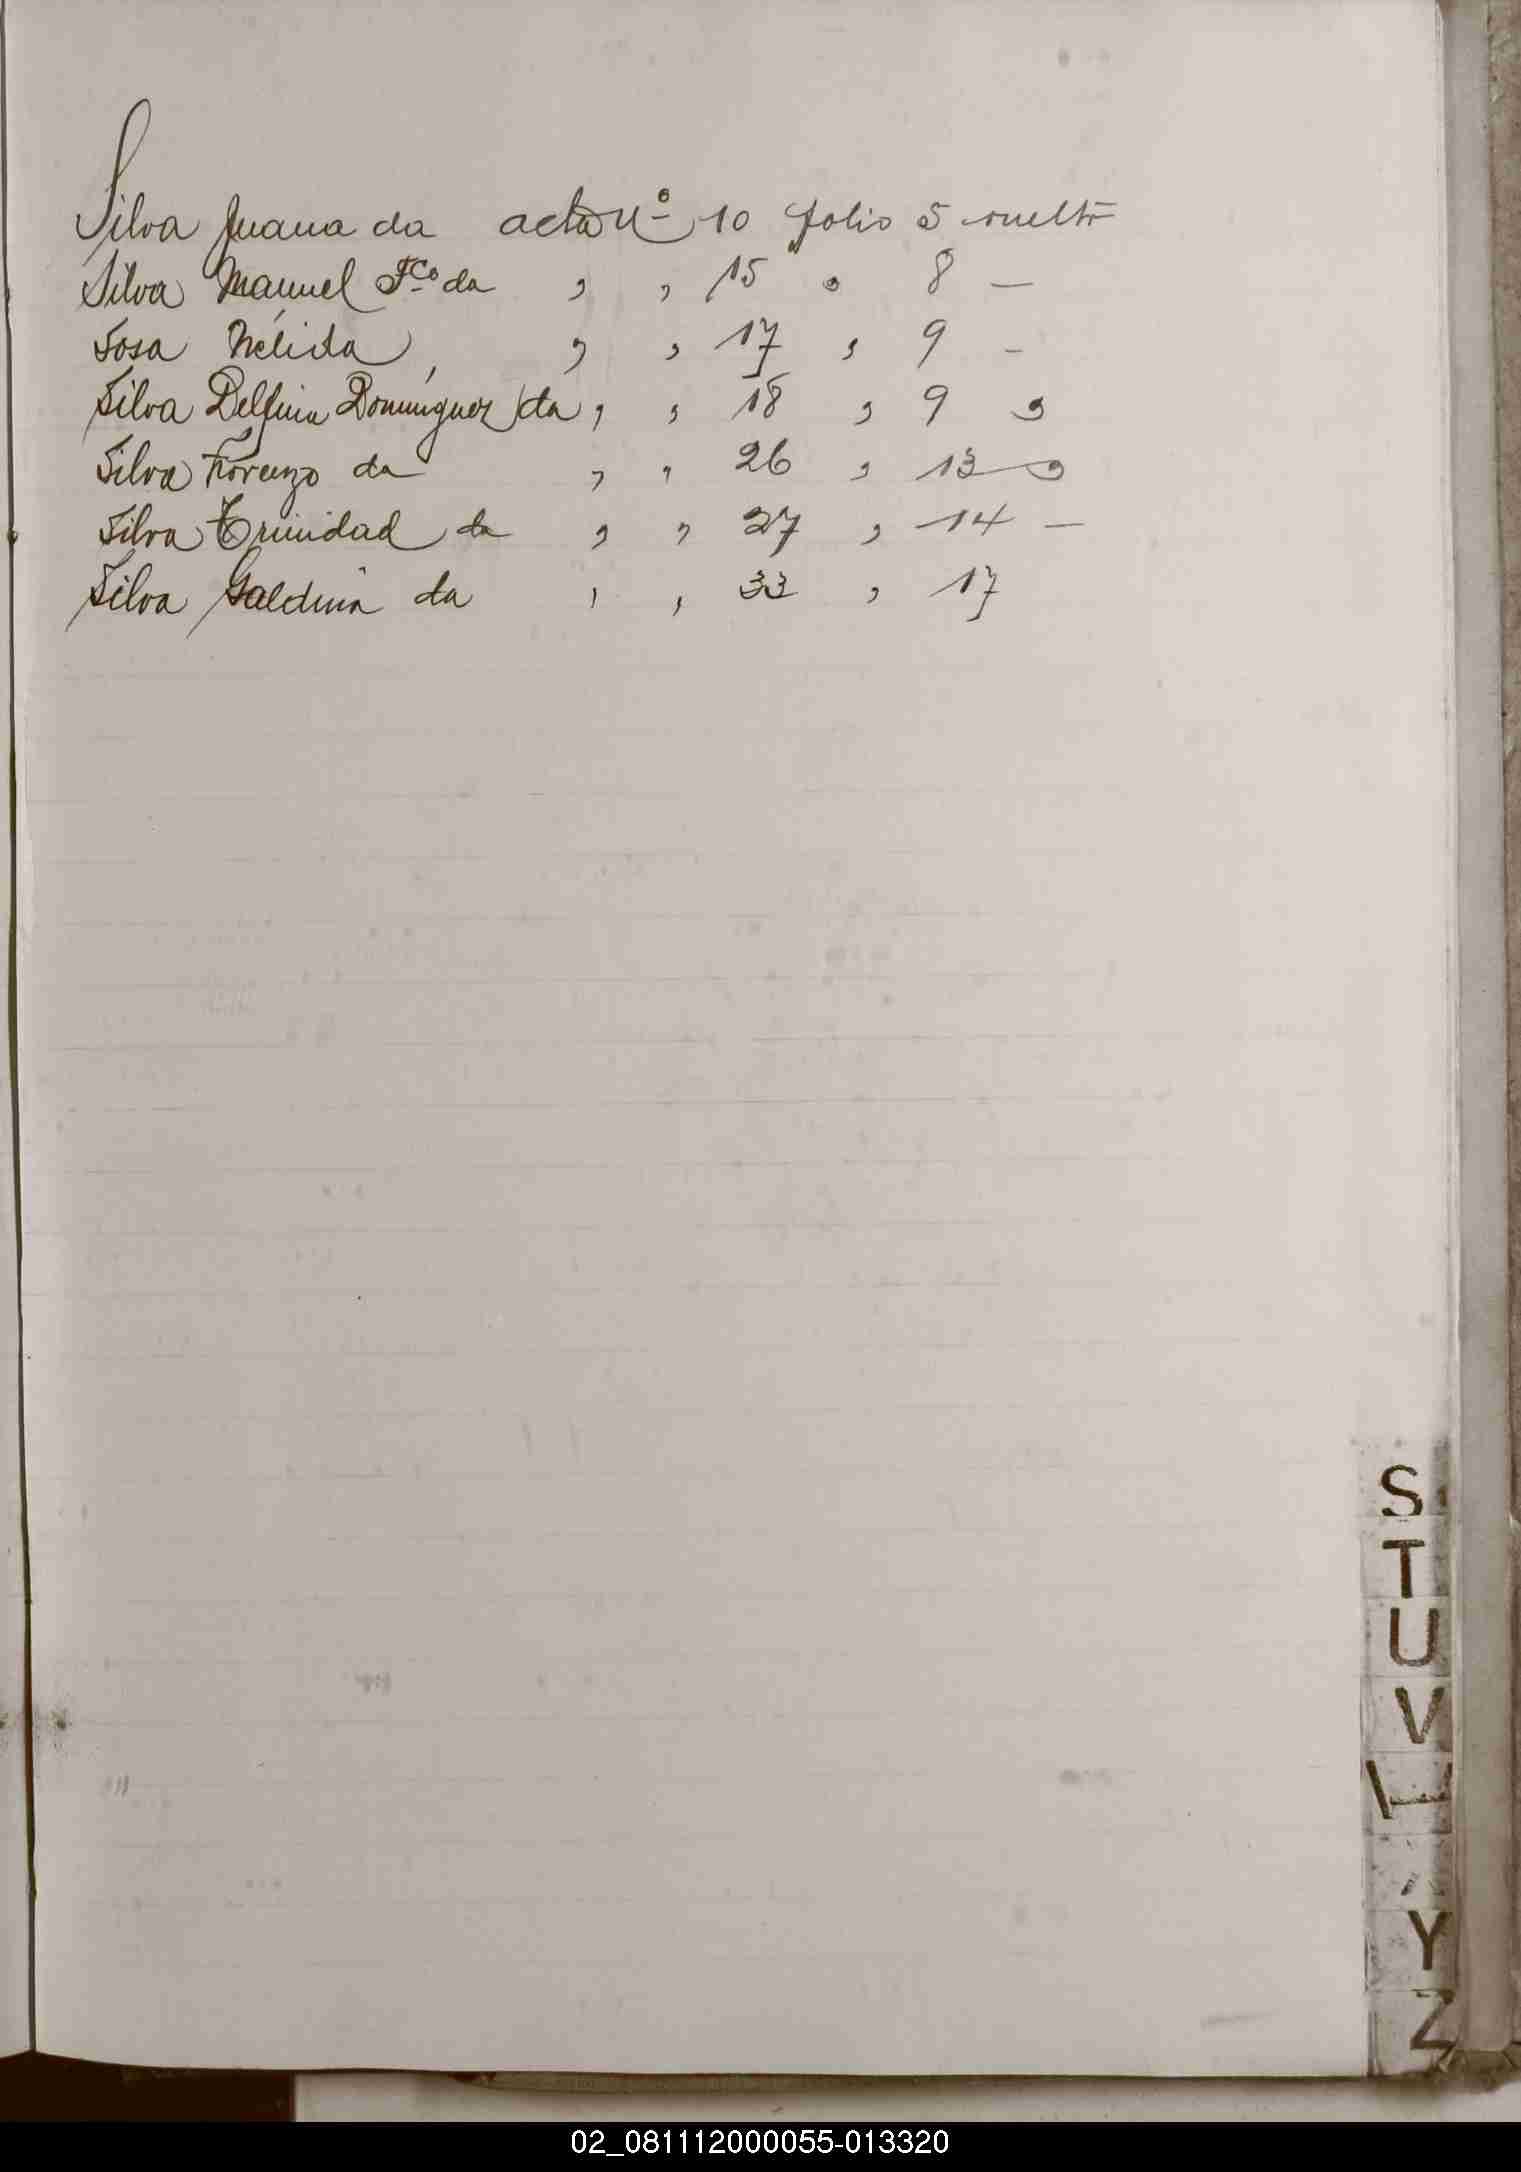 Silva Juana da acta Nº 10 folio 5 vuelto
Silva Manuel Fco. da " " 15 " 8 —
Sosa Nélida " " 17 " 9 -
Silva Delfina Domínguez da " " 18 " 9 "
Silva Florenzo da " " 26 " 13 "
Silva Trinidad da " " 27 " 14 —
Silva Galdina da " " 33 " 17
S
T
U
V
Y
Z
02_081112000055-013320